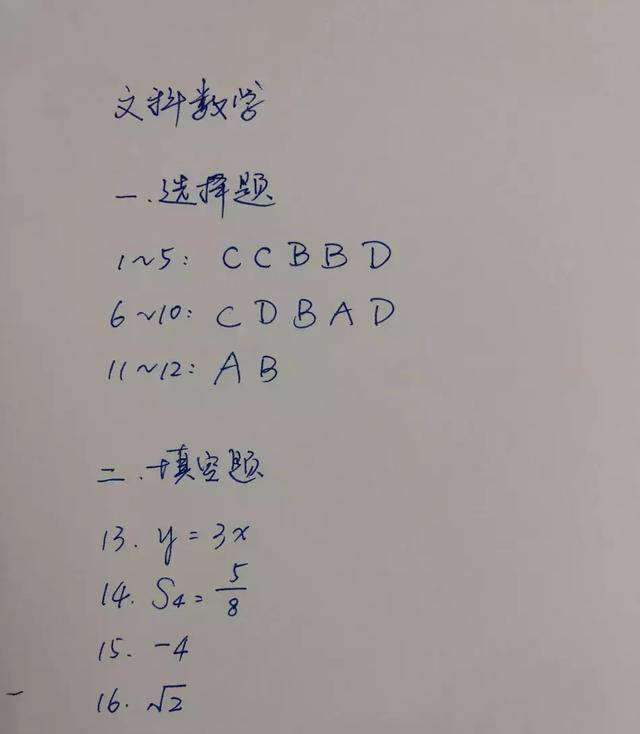 文科数学
一.选择题
1~5: C C B B D
6~10: C D B A D
11~12: A B
二.填空题
13. y = 3x
14. S₄ = 5/8
15. -4
16. √2